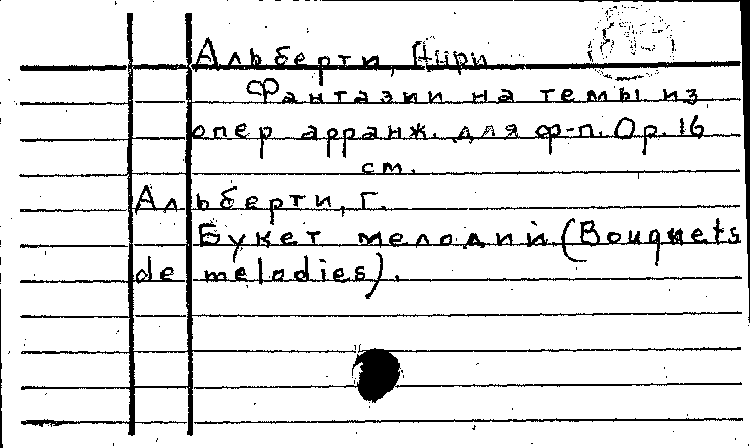 Альберти, Анри
Фантазии на темы из
опер арранж. для ф-п. Op. 16
см.
Альберти, Г.
Букет мелодий (Bouquets
de melodies).